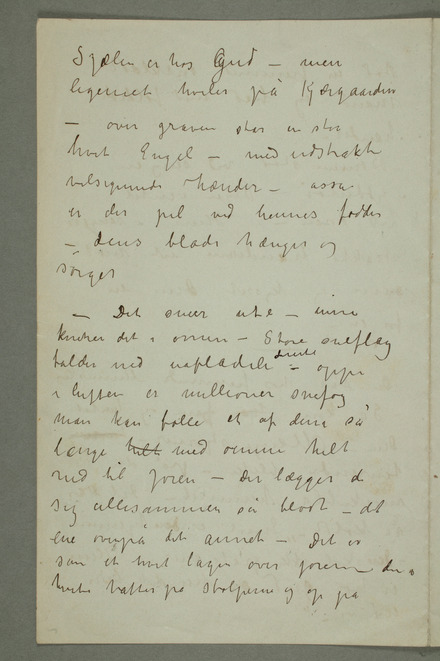 Sjælen er hos Gud – men
legemet hviler på Kjærgaarden
– over graven står en stor
hvit Engel – med udstrakte
velsignende hænder –
er der pil ved hennes fødder
– dens blade hænger og
sørger
– Det sneer ute – inne
knitrer det i ovnen – Store sneflag
falder ned uafladeli – oppe
i luften er millioner snefog
man kan følge et af dem så
længe helt med øinene helt
ned til joren – Der lægger d
sig allesammen så blødt – det
ene ovenpå det annet – Det er
som et hvit lagen over joren
hvite hatter på stolperne og op på